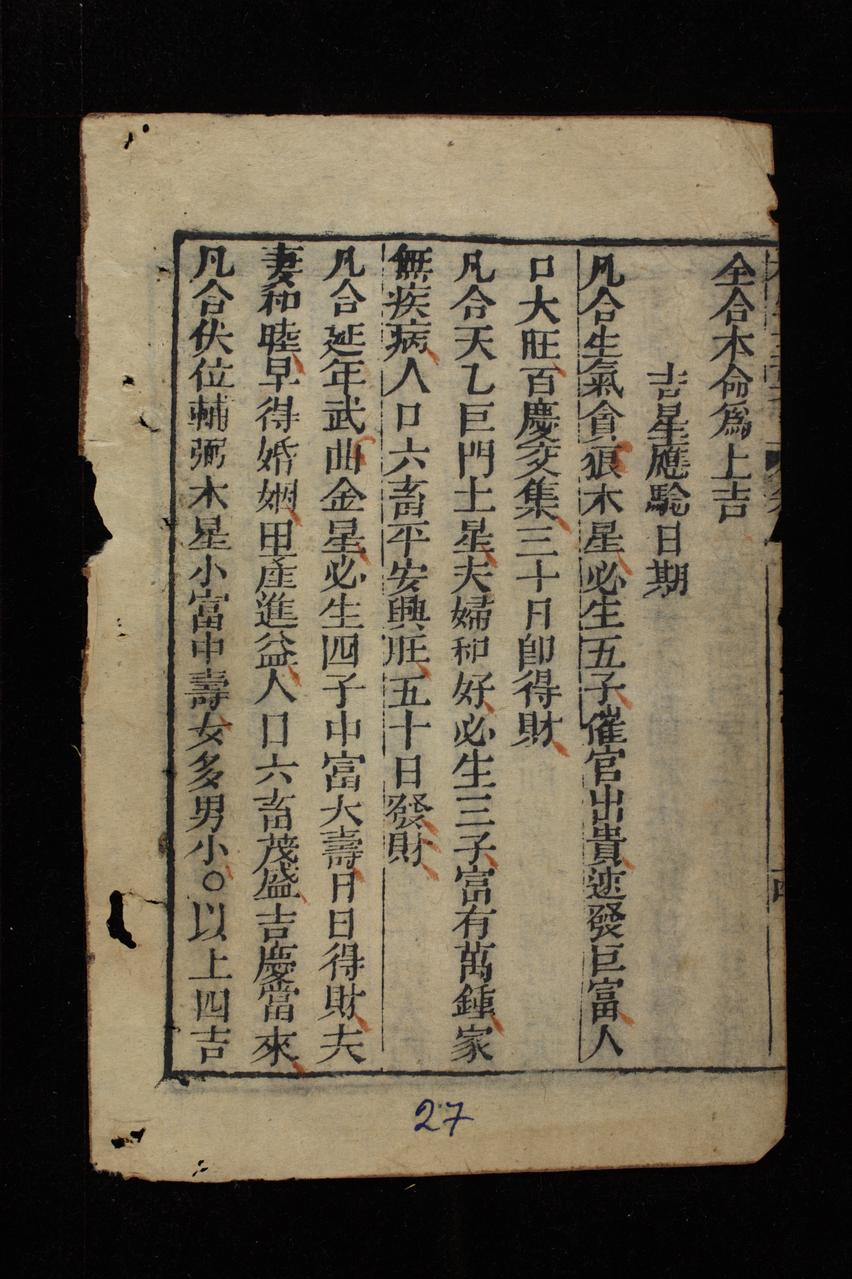 全合本命爲上吉
吉星應驗日期
凡合生氣貪狼木星必生五子催官出貴速發巨富人
口大旺百慶交集三十日卽得財
凡合天乙巨門土星夫婦和好必生三子富有萬鍾家
無疾病人口六畜平安興旺五十日發財
凡合延年武曲金星必生四子中富大壽日日得財夫
妻和睦早得婚姻田產進益人口六畜茂盛吉慶當來
凡合伏位輔弼木星小富中壽女多男小○以上四吉
27